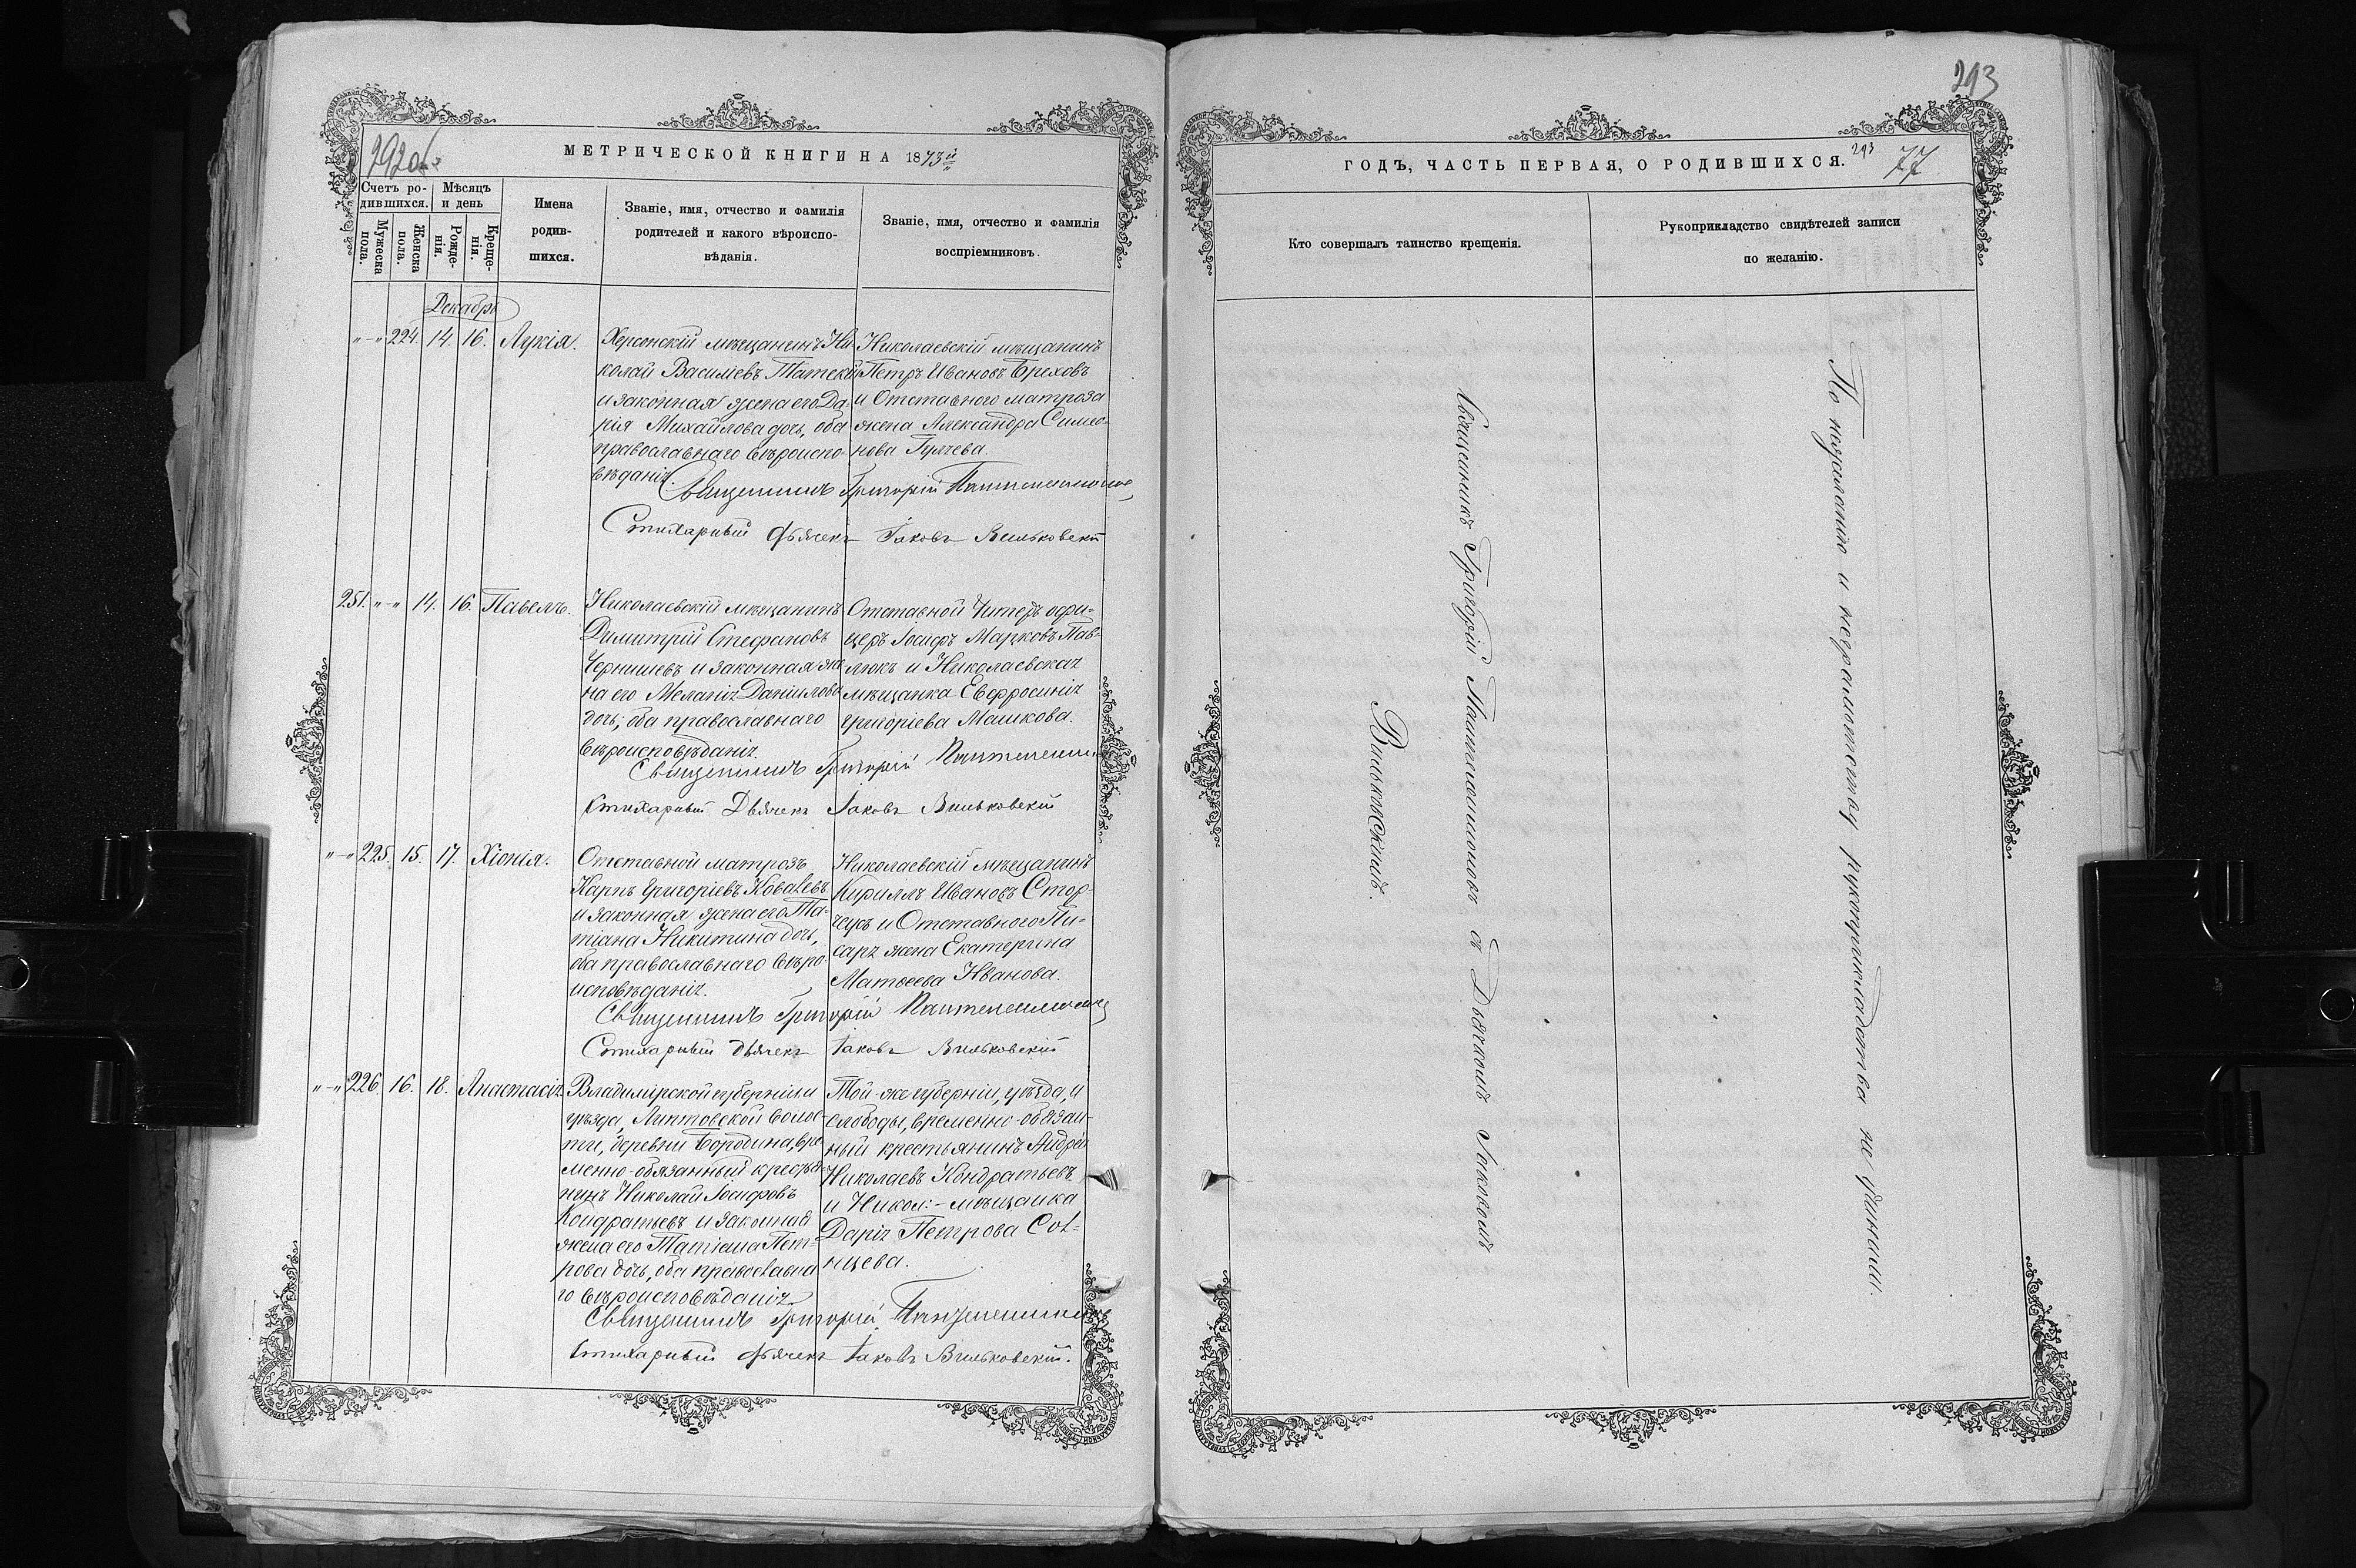 292об
МЕТРИЧЕСКОЙ КНИГИ НА 1873й
Счетъ ро-
дившихся.
Мѣсяцъ
и день
Мужеска
пола.
Женска
пола.
Рожде-
нія.
Креще-
нія.
Имена
родив-
шихся.
Званіе, имя, отчество и фамилія
родителей и какого вѣроиспо-
вѣданія.
Званіе, имя, отчество и фамилія
воспріемниковъ.
Декабрь
"-" 224. 14. 16. Лукія.
Херсонскій мѣщанинъ Ни
колай Васильевъ
и законная жена его Да-
рія Михайлова дочь, оба
православнаго вѣроиспо-
вѣданія.
Николаевскій мѣщанинъ
Петръ Ивановъ Ореховъ
и Отставного матроза
жена Александра Симо-
нова
Священникъ Григорій
Стихарный Дьячекъ Іаковъ Вильковскій
251. "-" 14. 16. Павелъ.
Николаевскій мѣщанинъ
Димитрій Стефановъ
Чернишевъ и законная же
на его Меланія Даніилова
дочь; оба православнаго
вѣроисповѣданія.
Отставной офи-
церъ Іосифъ Марковъ Пав-
люкъ и Николаевская
мѣщанка Евфросинія
Григоріева Машкова.
Священникъ Григорій
Стихарный Дьячекъ Іаковъ Вильковскій
"-" 225. 15. 17. Хіонія.
Отставной матрозъ
Карпъ Григоріевъ Ковалевъ
и законная жена его Та-
тіана Никитина дочь,
оба православнаго вѣро-
исповѣданія.
Николаевскій мѣщанинъ
Кириллъ Ивановъ
и Отставного Пи-
саря жена Екатерина
Матѳеева Иванова.
Священникъ Григорій
Стихарный Дьячекъ Іаковъ Вильковскій
"-" 226. 16. 18. Анастасія
Владимірской губерніи и
уѣзда, воло-
сти, деревни Бородина, вре
менно-обязанный крестья-
нинъ Николай Іосифовъ
Кондратьевъ и законная
жена его Татіана Пет-
рова дочь, оба православна
го вѣроисповѣданія
Той-же губерніи, уѣзда, и
слободы, временно-обязан-
ный крестьянинъ Андрей
Николаевъ Кондратьевъ
и Никол:-мѣщанка
Дарія Петрова Сол-
нцева.
Священникъ Григорій
Стихарный Дьячекъ Іаковъ Вильковскій.
293
ГОДЪ, ЧАСТЬ ПЕРВАЯ, О РОДИВШИХСЯ. 293 77
Кто совершалъ таинство крещенія.
Рукоприкладство свидѣтелей записи
по желанію.
Священникъ Григорій съ Дьячкомъ Іаковомъ
Вильковскимъ.
По и неграмотству рукоприкладства не учинили.